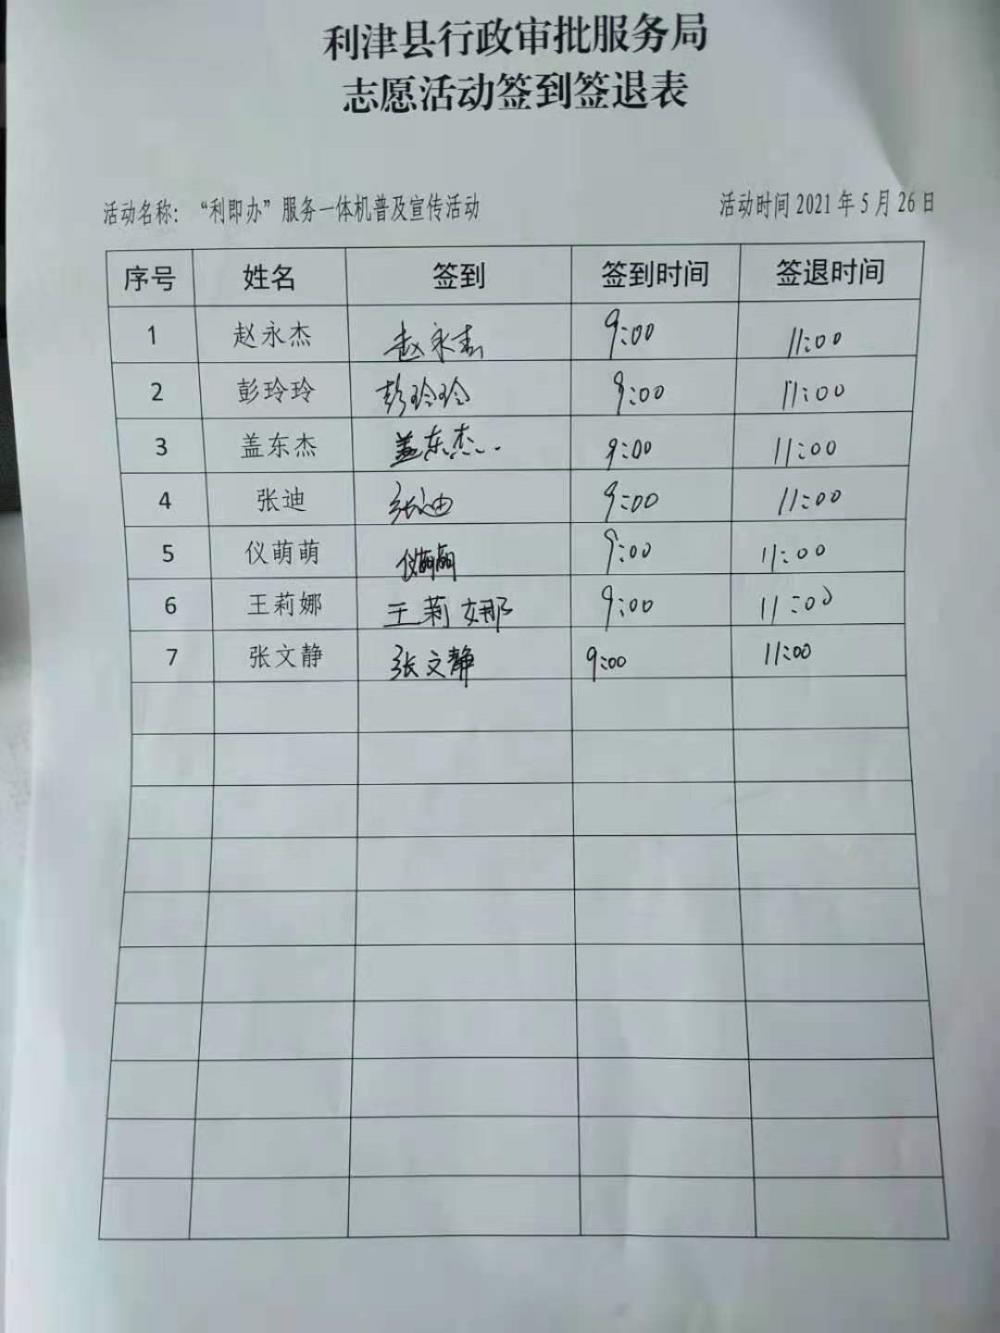 利津县行政审批服务局
志愿活动签到签退表
活动名称：“利即办”服务一体机普及宣传活动 活动时间 2021 年 5 月 26 日
序号 姓名 签到 签到时间 签退时间
1 赵永杰 赵永杰 9:00 11:00
2 彭玲玲 彭玲玲 9:00 11:00
3 盖东杰 盖东杰 9:00 11:00
4 张迪 张迪 9:00 11:00
5 仪萌萌 仪萌萌 9:00 11:00
6 王莉娜 王莉娜 9:00 11:00
7 张文静 张文静 9:00 11:00